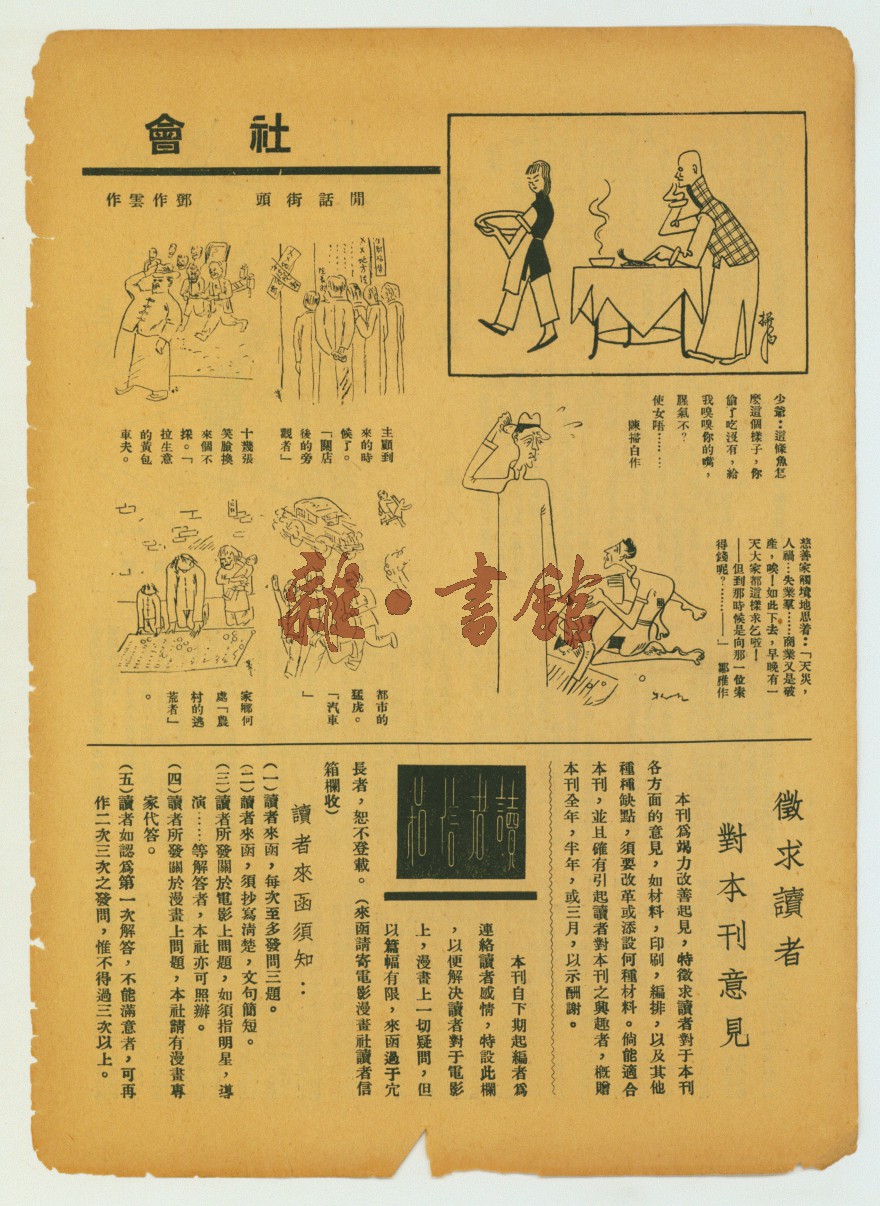 社會
閒話街頭 鄧作雲作
主顧到
來的時
候了。
「關店
後的旁
觀者」
十幾張
笑臉換
來個不
睬。「
拉生意
的黃包
車夫。
都市的
猛虎。
「汽車
」
家鄉何
處「農
村的逃
荒者」
。
少爺：這條魚怎
麼這個樣子，你
偷了吃沒有，給
我嗅嗅你的嘴，
腥氣不？
使女唔……
陳掃白作
慈善家觸境地思着：「天災，
人禍…失業羣……商業又是破
產，唉！如此下去，早晚有一
天大家都這樣求乞啦！
——但到那時候是向那一位索
得錢呢？………——」 鄒雅作
徵求讀者
對本刊意見
本刊爲竭力改善起見，特徵求讀者對于本刊
各方面的意見，如材料，印刷，編排，以及其他
種種缺點，須要改革或添設何種材料。倘能適合
本刊，並且確有引起讀者對本刊之興趣者，槪贈
本刊全年，半年，或三月，以示酬謝。
讀者信箱
本刊自下期起編者爲
連絡讀者感情，特設此欄
，以便解決讀者對于電影
上，漫畫上一切疑問，但
以篇幅有限，來函過于冗
長者，恕不登載。（來函請寄電影漫畫社讀者信
箱欄收）
讀者來函須知：
（一）讀者來函，每次至多發問三題。
（二）讀者來函，須抄寫淸楚，文句簡短。
（三）讀者所發關於電影上問題，如須指明星，導
演……等解答者，本社亦可照辦。
（四）讀者所發關於漫畫上問題，本社請有漫畫專
家代答。
（五）讀者如認爲第一次解答，不能滿意者，可再
作二次三次之發問，惟不得過三次以上。
雜·書館